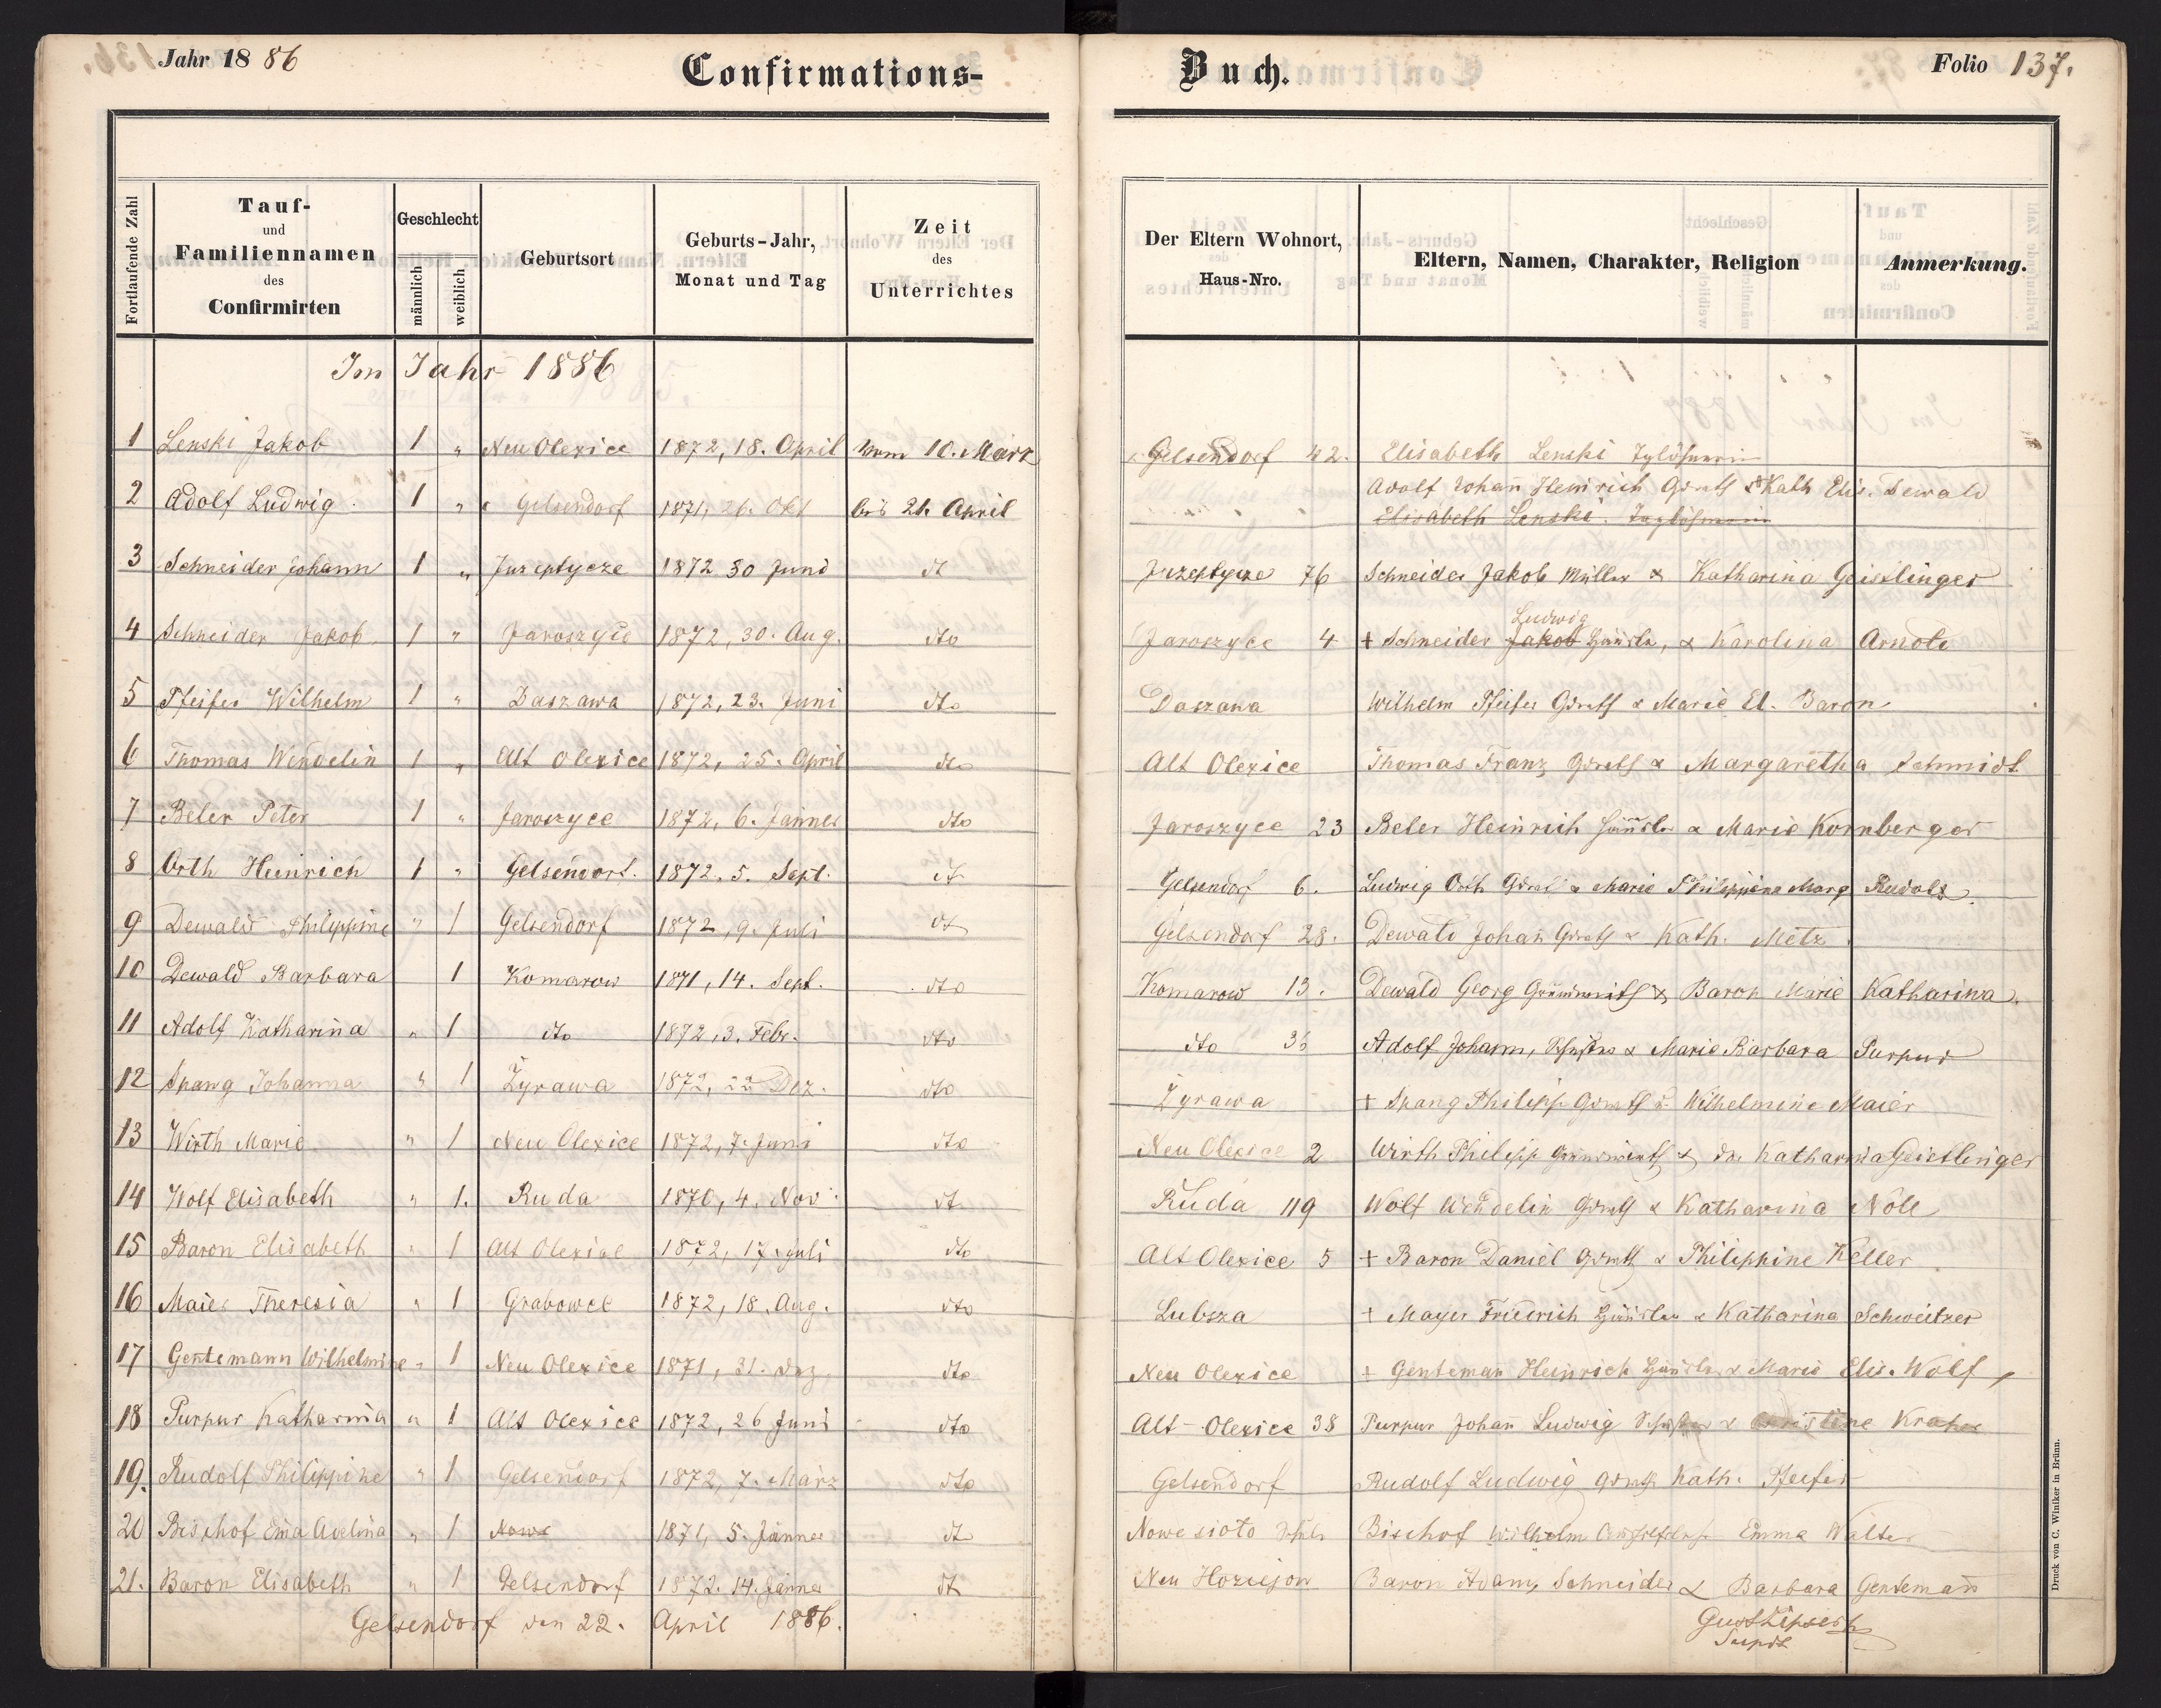 Jahr 1886
Confirmations-
Buch.
Folio 137.
Fortlaufende Zahl
Tauf-
und
Familiennamen
des
Confirmirten
Geschlecht
männlich
weiblich
Geburtsort
Geburts-Jahr,
Monat und Tag
Zeit
des
Unterrichtes
Der Eltern Wohnort,
Haus-Nro.
Eltern, Namen, Charakter, Religion
Anmerkung.
Im Jahr 1886
1 Lenski Jakob 1 " Neu Olexice 1872, 18. April vom 10. März Gelsendorf 42. Elisabeth Lenski
2 Adolf Ludwig 1 " Gelsendorf 1871, 26. Okt bis 21. April Adolf Johañ Heinrich & Kath Elis. Dewald
Elisabeth Lenski.
3 Schneider Johann 1 " Juzeptycze 1872 30 Juni dt Juzeptycze 76 Schneider Jakob Müller & Katharina Geistlinger
4 Schneider Jakob 1 " Jaroszyce 1872, 30. Aug. dto Jaroszyce 4 + Schneider Jakob Ludwig & Karolina Arnold
5 Pfeifer Wilhelm 1 " Daszawa 1872, 23. Juni dto Daszawa Wilhelm Pfeifer & Marie El. Baron
6 Thomas Wendelin 1 " Alt Olexice 1872, 25. April dto Alt Olexice Thomas Franz & Margaretha Schmidt
7 Beler Peter 1 " Jaroszyce 1872, 6. Jänner dto Jaroszyce 23 Beler Heinrich & Marie Kornberger
8 Orth Heinrich 1 " Gelsendorf. 1872. 5. Sept. dt Gelsendorf 6. Ludwig Orth & Marie Philippine Marg Rudolf
9 Dewald Philippine " 1 Gelsendorf 1872, 9. Juli dt Gelsendorf 28. Dewald Johañ & Kath. Metz
10 Dewald Barbara 1 Komarow 1871, 14. Sept. dto Komarow 13. Dewald Georg & Baron Marie Katharina
11 Adolf Katharina " 1 dto 1872, 3. Febr. dto dto 36 Adolf Johann, & Marie Barbara Purpur
12 Spang Johanna " 1 Żyrawa Dez. dto Żyrawa + Spang Philipp & Wilhelmine Maier
13 Wirth Marie " 1 Neu Olexice 1872, 7. Juni dto Neu Olexice 2 Wirth Philipp & Katharina Geistlinger
14 Wolf Elisabeth " 1. Ruda 1870, 4. Nov. dt. Ruda 119 Wolf Wendelin & Katharina Noll
15 Baron Elisabeth " 1 Alt Olexice 1872, 17. Juli dto Alt Olexice 5 + Baron Daniel & Philippine Keller
16 Maier Theresia " 1 Grabowce 1872, 18. Aug. dto Lubsza + Mayer Friedrich & Katharina Schweitzer
17 Gentemann Wilhelmine " 1 Neu Olexice 1871, 31. Dez. dto Neu Olexice + Genteman Heinrich & Marie Elis. Wolf
18 Purpur Katharina " 1 Alt Olexice 1872, 26 Juni dto Alt-Olexice 38 Purpur Johañ Ludwig & Christine
19. Rudolf Philippine " 1 Gelsendorf 1872, 7. März dto Gelsendorf Rudolf Ludwig Kath. Pfeifer
20 Bischof Em̃a Adelina " 1 Nowe 1871, 5. Jänner dt Nowe sioło Bischof Wilhelm Emma Walter
21. Baron Elisabeth " 1 Gelsendorf 1872. 14. Jänner dt Neu Baron Adam, Schneider & Barbara Gentemañ
Gelsendorf den 22. April 1886.
Druck von C. Winiker in Brünn.